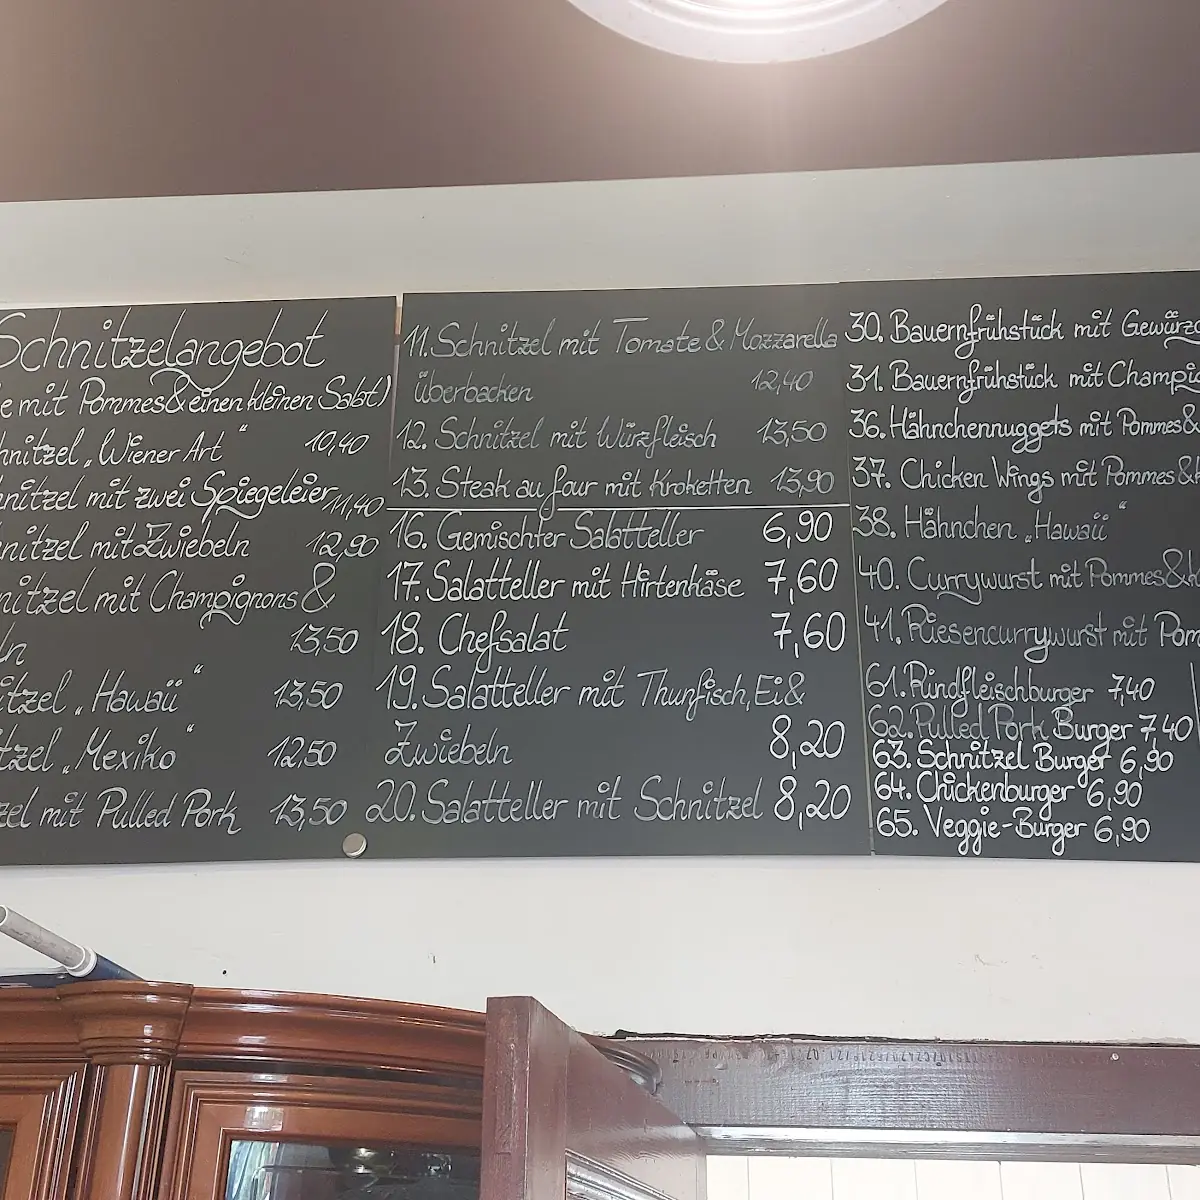 Schnitzelangebot
e mit Pommes & einen kleinen Salat)
hnitzel „Wiener Art“ 10,40
hnitzel mit zwei Spiegeleier 11,40
nitzel mit Zwiebeln 12,90
nitzel mit Champignons &
ln 13,50
itzel „Hawaii“ 13,50
tzel „Mexiko“ 12,50
zel mit Pulled Pork 13,50
11. Schnitzel mit Tomate & Mozzarella
überbacken 12,40
12. Schnitzel mit Würzfleisch 13,50
13. Steak au four mit Kroketten 13,90
16. Gemischter Salatteller 6,90
17. Salatteller mit Hirtenkäse 7,60
18. Chefsalat 7,60
19. Salatteller mit Thunfisch, Ei &
Zwiebeln 8,20
20. Salatteller mit Schnitzel 8,20
30. Bauernfrühstück mit Gewürzg
31. Bauernfrühstück mit Champig
36. Hähnchennuggets mit Pommes &
37. Chicken Wings mit Pommes &
38. Hähnchen „Hawaii“
40. Currywurst mit Pommes &
41. Riesencurrywurst mit Pom
61. Rindfleischburger 7,40
62. Pulled Pork Burger 7,40
63. Schnitzel Burger 6,90
64. Chickenburger 6,90
65. Veggie-Burger 6,90